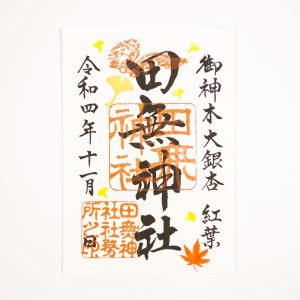 御神木大銀杏 紅葉
田無神社
令和四年十一月 日
田無神社
田無神社社務所之印